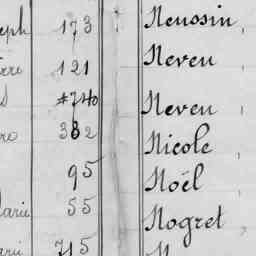 eph 173 Neuosin,
rre 121 Neveu
740 Neveu,
382 Nicole,
95 Noël,
arie 55 Nogret,
arie 715